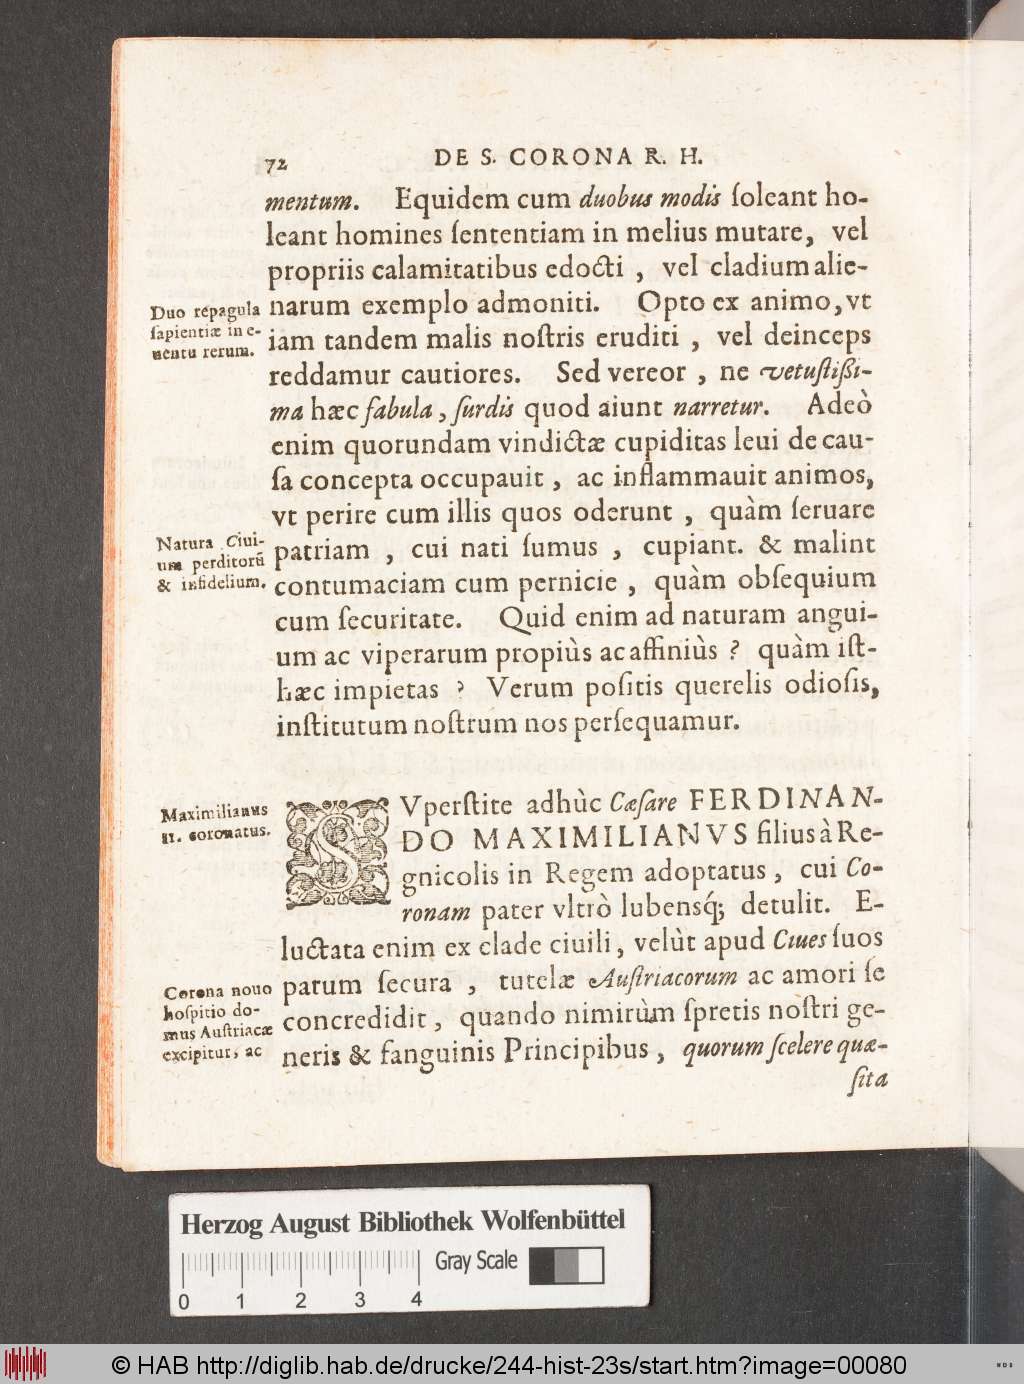 72
DE S. CORONA R. H.
mentum. Equidem cum duobus modis ſoleant ho-
leant homines ſententiam in melius mutare, vel
propriis calamitatibus edocti, vel cladium alie-
narum exemplo admoniti. Opto ex animo, vt
iam tandem malis noſtris eruditi, vel deinceps
reddamur cautiores. Sed vereor, ne vetuſtiſſi-
ma hæc fabula, ſurdis quod aiunt narretur. Adeò
enim quorundam vindictæ cupiditas leui de cau-
ſa concepta occupauit, ac inflammauit animos,
vt perire cum illis quos oderunt, quàm ſeruare
patriam, cui nati ſumus, cupiant. & malint
contumaciam cum pernicie, quàm obſequium
cum ſecuritate. Quid enim ad naturam angui-
um ac viperarum propiùs ac affiniùs? quàm iſt-
hæc impietas? Verum poſitis querelis odioſis,
inſtitutum noſtrum nos perſequamur.
Duo repagula
ſapientiæ in e-
uentu rerum.
Natura Ciui-
um perditorũ
& infidelium.
Maximilianus
II. coronatus.
SVperſtite adhùc Cæſare FERDINAN-
DO MAXIMILIANVS filius à Re-
gnicolis in Regem adoptatus, cui Co-
ronam pater vltrò lubensq́; detulit. E-
luctata enim ex clade ciuili, velùt apud Ciues ſuos
parum ſecura, tutelæ Auſtriacorum ac amori ſe
concredidit, quando nimirùm ſpretis noſtri ge-
neris & ſanguinis Principibus, quorum ſcelere quæ-
ſita
Corona nouo
hoſpitio do-
mus Auſtriacæ
excipitur, ac
Herzog August Bibliothek Wolfenbüttel
Gray Scale
0 1 2 3 4
© HAB http://diglib.hab.de/drucke/244-hist-23s/start.htm?image=00080